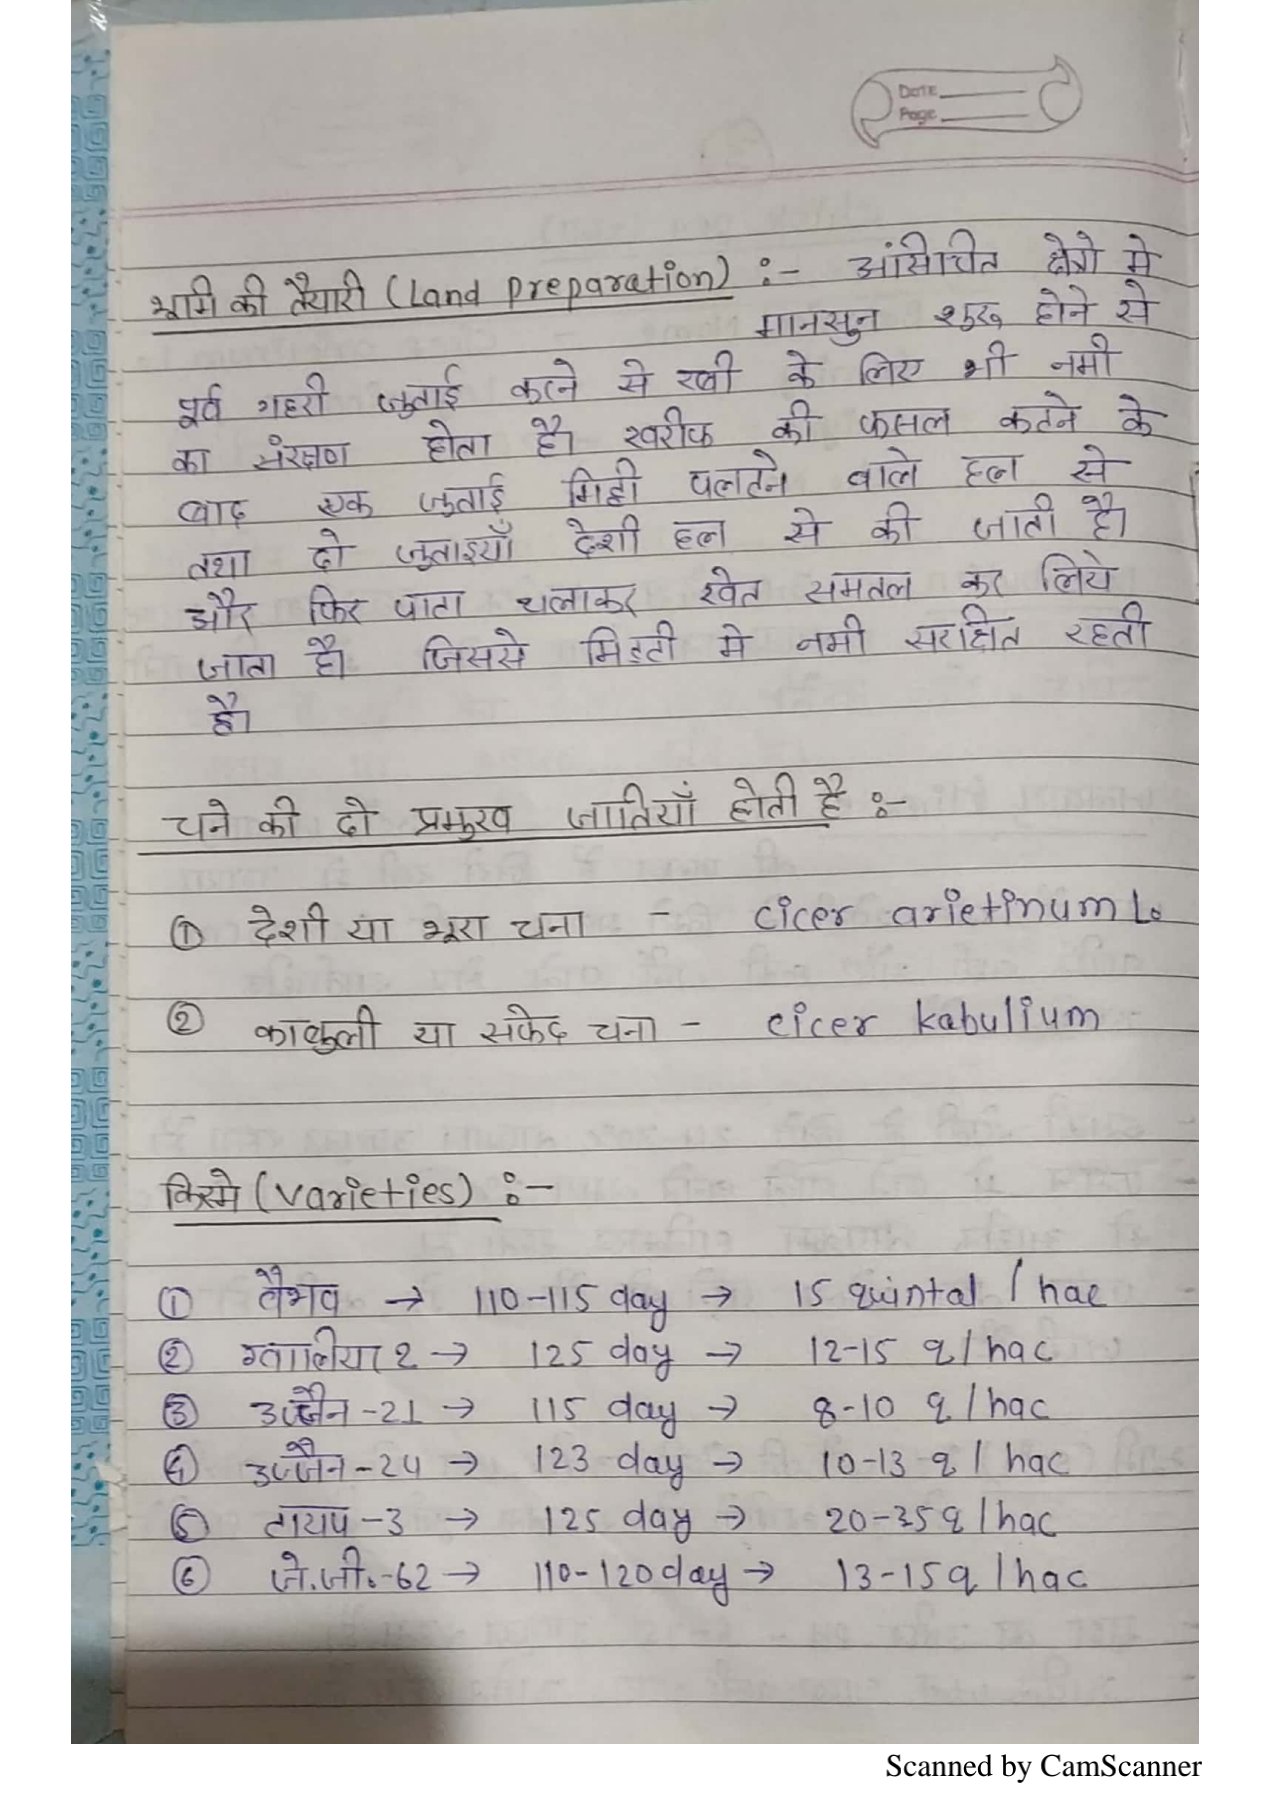 DATE
Page
भूमि की तैयारी (Land preparation) :- आंसिचित क्षेत्रो मे
मानसुन शुरू होने से
पूर्व गहरी जुताई करने से रबी के लिए भी नमी
का संरक्षण होता है। खरीफ की फसल कटने के
बाद एक जुताई मिट्टी पलटने वाले हल से
तथा दो जुताइयाँ देशी हल से की जाती है।
और फिर पाटा चलाकर खेत समतल कर लिये
जाता है। जिससे मिट्टी मे नमी सरक्षित रहती
है।
चने की दो प्रमुख जातियाँ होती है :-
① देशी या भूरा चना - cicer arietinum L.
② काबुली या सफेद चना - cicer kabulium
किस्मे (varieties) :-
① वैभव → 110-115 day → 15 quintal / hac
② ग्वालियर 2 → 125 day → 12-15 q / hac
③ उज्जैन -21 → 115 day → 8-10 q / hac
④ उज्जैन -24 → 123 day → 10-13 q / hac
⑤ टायप -3 → 125 day → 20-35 q / hac
⑥ जे.जी.-62 → 110-120 day → 13-15 q / hac
Scanned by CamScanner